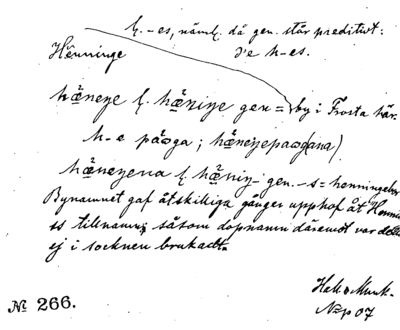 h. -es, näml. då gen. står preditivt:
Hénninge d'e h-es.
hæneŋe l. hæniŋe gen = by i Frosta här.
h-e påoga; hæneŋepaog(ana)
hæneŋena l. hæniŋ- gen. -s = henningebor
Bynamnet gaf åtskilliga gånger upphof åt
ss tillnamn; såsom dopnamn däremot var detta
ej i socknen brukadt.
Hak. Munk.
07
№ 266.